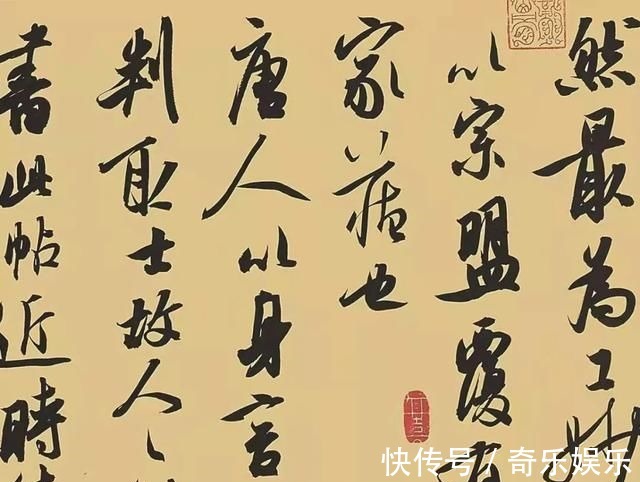 然最為工
以宗盟覆
家藏也
唐人以身言
判取士故人々
書此帖近時
快传号 / 奇乐娱乐